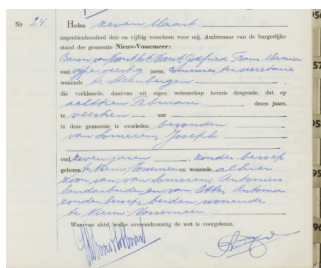 Nr 24 Heden zeven Maart
negentienhonderd drie en vijftig verscheen voor mij, Ambtenaar van de burgerlijke
stand der gemeente Nieuw-Vossemeer:
oud vijf en veertig jaren, secretarie
wonende te Steenbergen
die verklaarde, daarvan uit eigen wetenschap kennis dragende, dat op
achttien Februari dezes jaars,
te veertien uur
in deze gemeente is overleden
van Someren, Joseph
oud zeven jaren, zonder beroep
geboren te Nieuw Vossemeer en wonende alhier
zoon van van Someren, Antonius
landarbeider en van Otte, Antonia
zonder beroep, beiden wonende
te Nieuw Vossemeer
Waarvan akte, welke overeenkomstig de wet is voorgelezen.